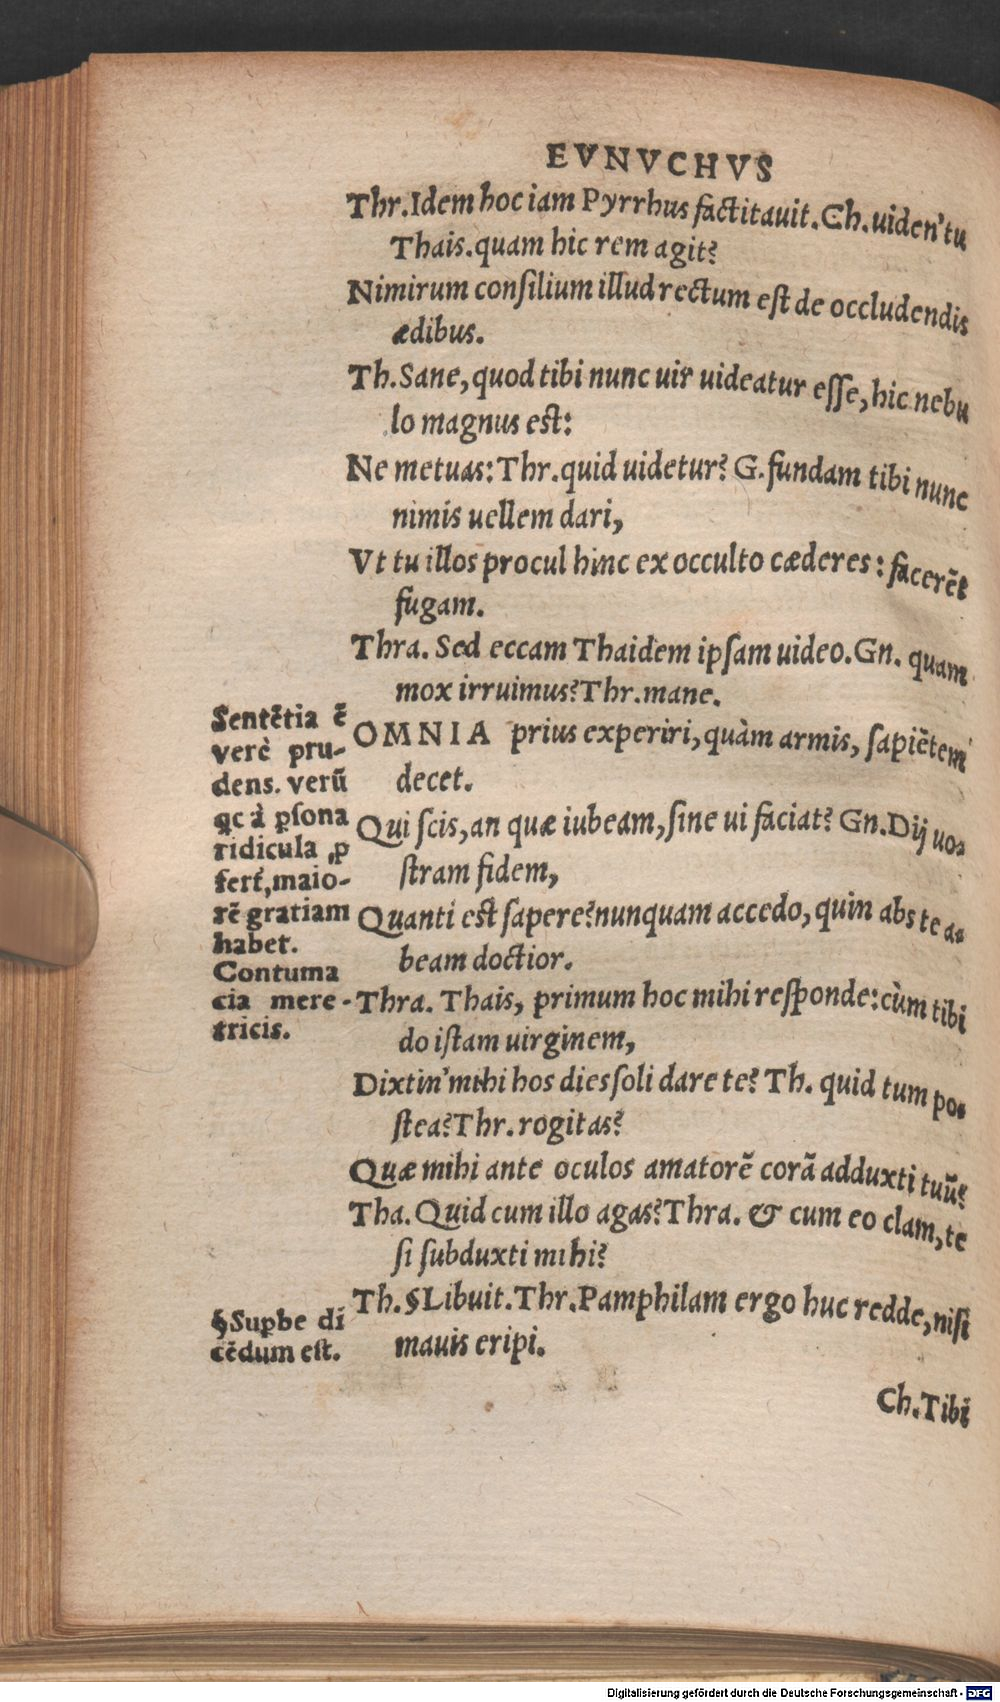 EVNVCHVS
Thr.Idem hoc iam Pyrrhus factitauit.Ch.uiden'tu
Thais.quam hic rem agit?
Nimirum consilium illud rectum est de occludendis
ædibus.
Th.Sane,quod tibi nunc uir uideatur esse,hic nebu
lo magnus est:
Ne metuas:Thr.quid uidetur? G.fundam tibi nunc
nimis uellem dari,
Vt tu illos procul hinc ex occulto cæderes: facerēt
fugam.
Thra. Sed eccam Thaidem ipsam uideo.Gn. quam
mox irruimus?Thr.mane.
OMNIA prius experiri,quàm armis, sapiētem
decet.
Qui scis,an quæ iubeam,sine ui faciat? Gn.Dij uo-
stram fidem,
Quanti est sapere?nunquam accedo,quin abs te a-
beam doctior.
Thra. Thais, primum hoc mihi responde:cùm tibi
do istam uirginem,
Dixtin'mihi hos dies soli dare te? Th. quid tum po-
stea?Thr.rogitas?
Quæ mihi ante oculos amatorē corā adduxti tuū?
Tha. Quid cum illo agas?Thra. & cum eo clam,te
si subduxti mihi?
Th.§Libuit.Thr.Pamphilam ergo huc redde,nisi
mauis eripi.
Ch.Tibi
Sentētia ē
verè pru-
dens. verū
qc à ꝑsona
ridicula ꝓ
fert,maio-
rē gratiam
habet.
Contuma
cia mere-
tricis.
§Suꝑbe di
cēdum est.
Digitalisierung gefördert durch die Deutsche Forschungsgemeinschaft - DFG